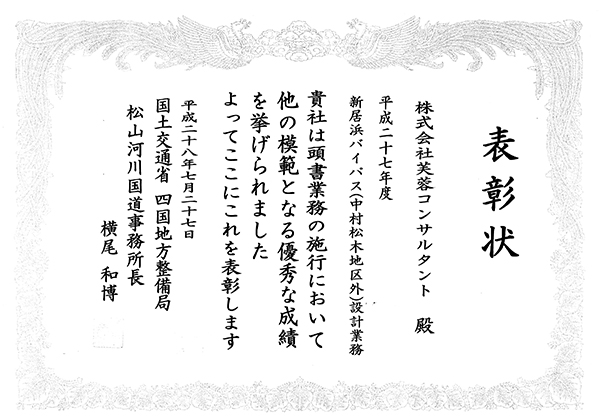 表彰状
株式会社芙蓉コンサルタント 殿
平成二十七年度
新居浜バイパス(中村松木地区外)設計業務
貴社は頭書業務の施行において
他の模範となる優秀な成績
を挙げられました
よってここにこれを表彰します
平成二十八年七月二十七日
国土交通省 四国地方整備局
松山河川国道事務所長
横尾 和博